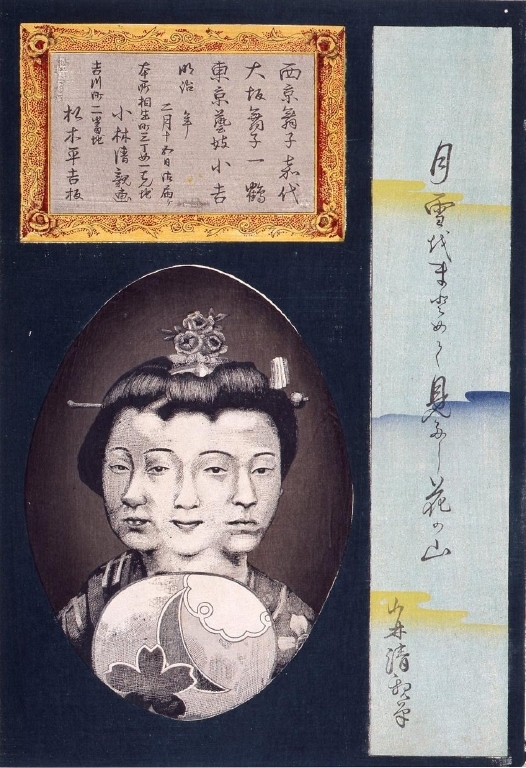 月雪越まとめて見多し花の山
小林清親筆
西京舞子嘉代
大坂舞子一鶴
東京藝妓小吉
明治 年
二月十五日御届
本所相生町三丁め
小林清親画
吉川町二番地
松木平吉板